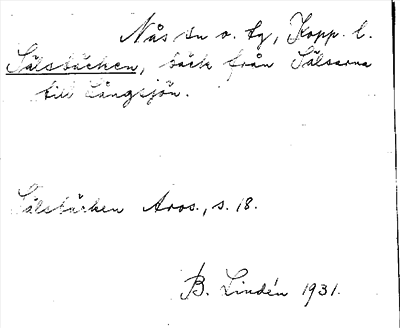 Nås sn o. tg, Kopp. l.
Sälsbäcken, bäck från Sälsarna
till Långsjön.
Sälsbäcken Aros., s. 18.
B. Lindén 1931.